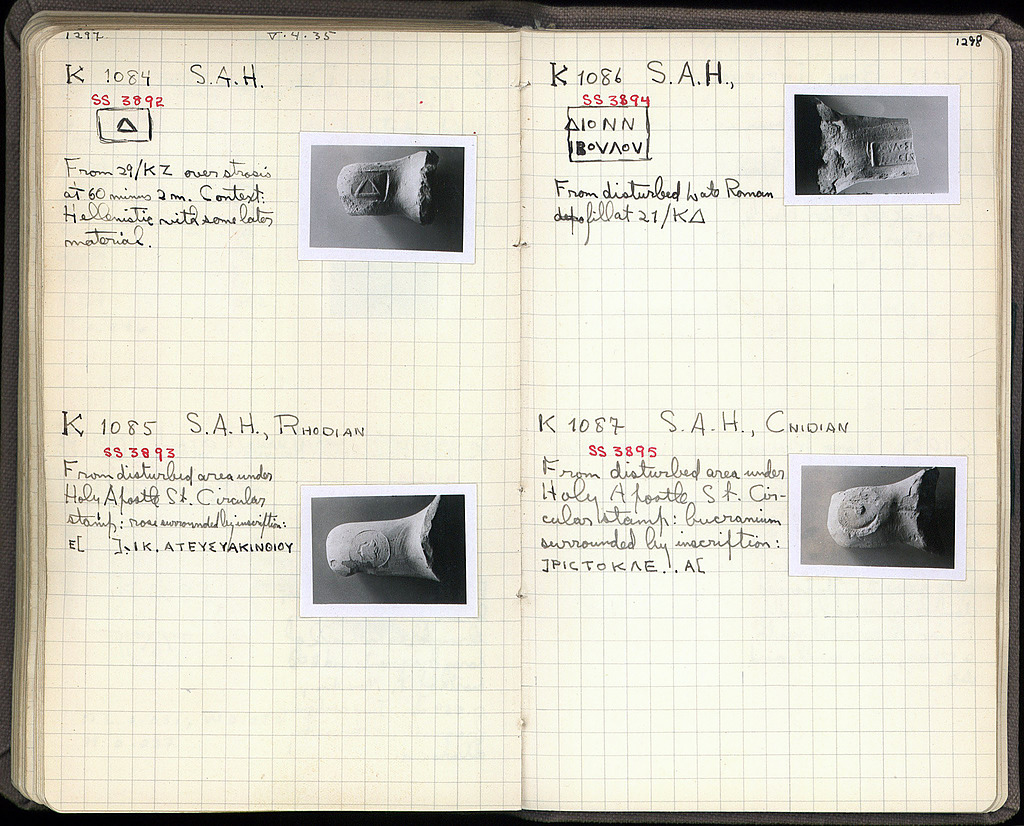 1297
V·4·35
K 1084 S.A.H.
SS 3892
Δ
From 29/KZ over strosis
at 60 minus 2m. Context:
Hellenistic with some later
material.
K 1085 S.A.H., RHODIAN
SS 3893
From disturbed area under
Holy Apostle St. Circular
stamp: rose surrounded by inscription:
1298
K 1086 S.A.H.,
SS 3894
ΔΙΟΝΝ
ΙΒΟVΛΟV
From disturbed Late Roman
fill at 21/KΔ
K 1087 S.A.H., CNIDIAN
SS 3895
From disturbed area under
Holy Apostle St. Cir-
cular stamp: bucranium
surrounded by inscription:
]ΡΙCΤΟΚΛΕ..Α[